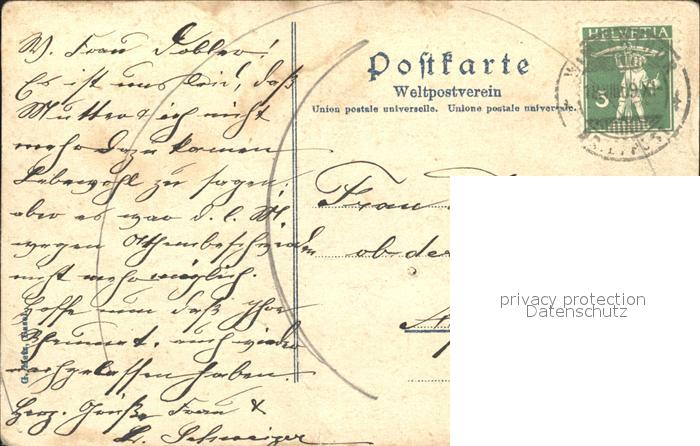 W. Frau Dobler!
Es ist uns leid, daß
Mutter & ich nicht
mehr dazu kamen
Lebewohl zu sagen,
aber es war d. l. M.
wegen Athembeschwerden
nicht mehr möglich.
Hoffe nun daß Ihre
Rheumat. auch wieder
nachgelassen haben.
Herz. Grüße Frau &
Schweizer
Postkarte
Weltpostverein
Union postale universelle. Unione postale universale.
HELVETIA
5
Frau
ob der
G. Metz, Basel
privacy protection
Datenschutz